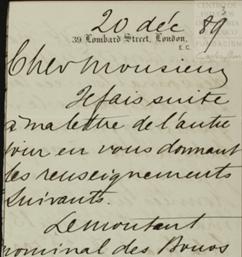 20 déc 89
39 Lombard Street, London,
E.C.
Cher Monsieur
Je fais suite
à ma lettre de l'autre
jour en vous donnant
les renseignements
suivants.
Le montant
nominal des Bonos